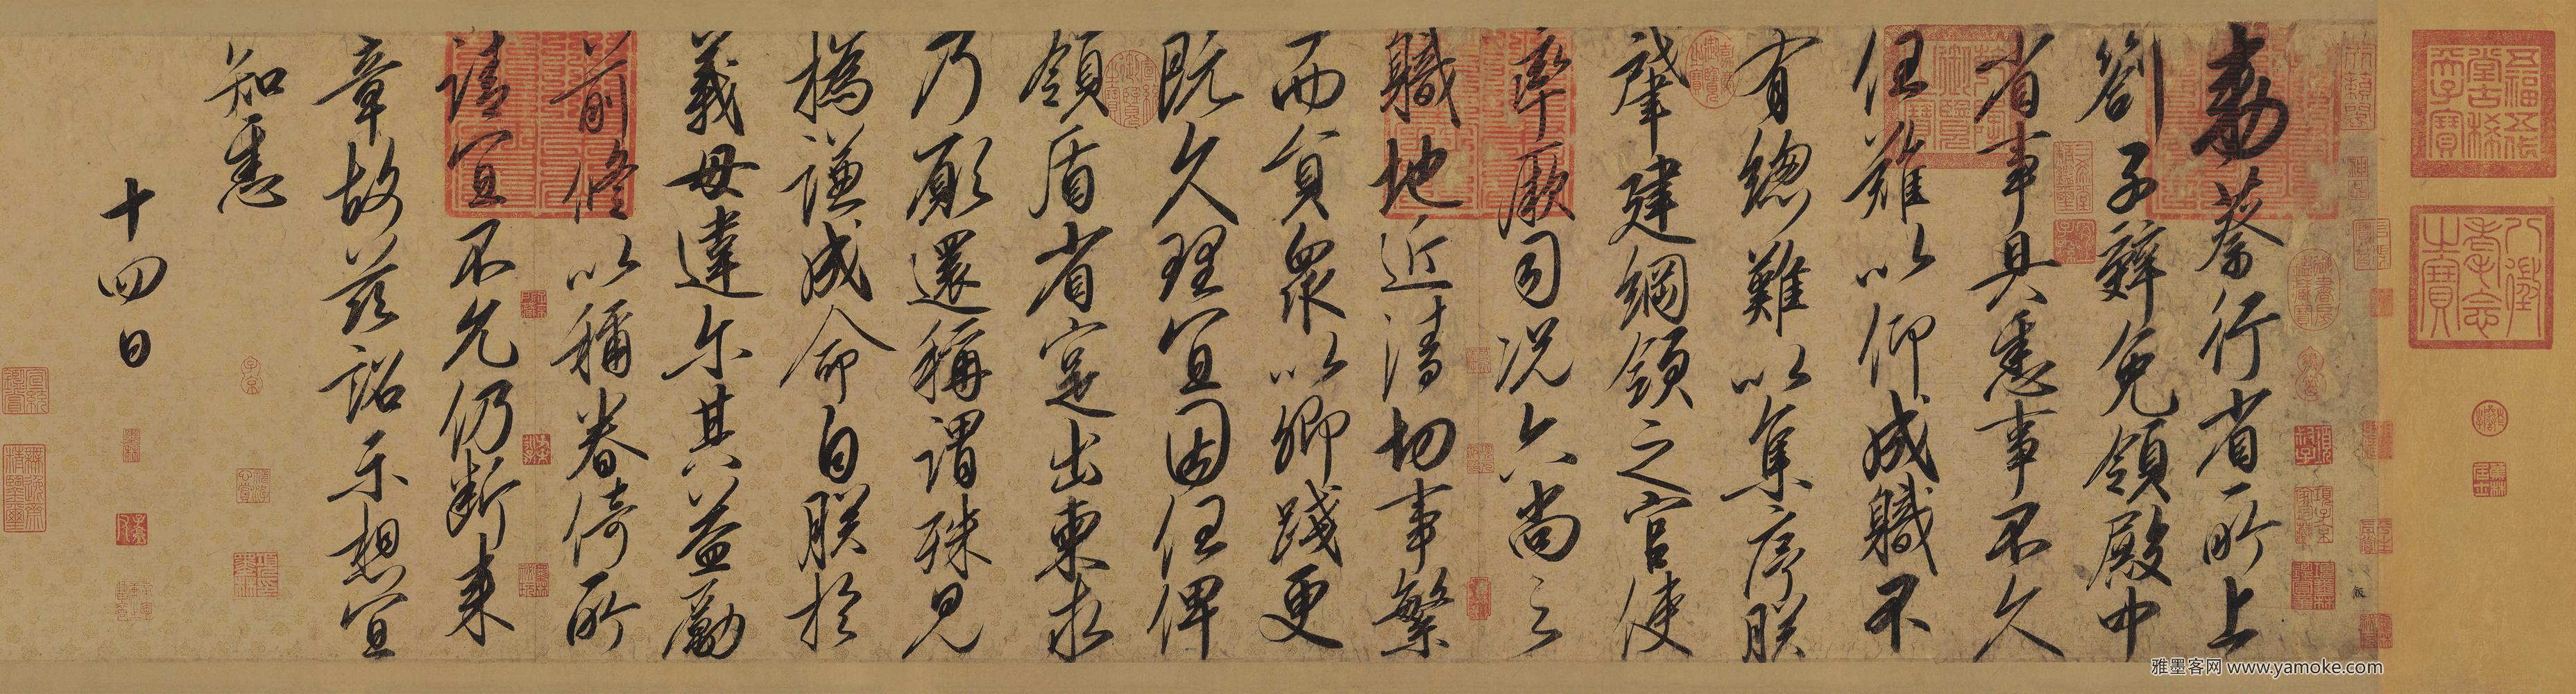 敕蔡行省所上
劄子辭免領殿中
省事具悉事不久
任難以仰成職不
有總難以集序朕
肇建綱領之官使
率厥司況六尚之
職地近清切事繁
而員衆以卿踐更
既久理宜因任俾
領盾省寔出柬求
乃願還稱謂殊見
撝謙成命自朕於
義毋違尔其益勵
前修以稱眷倚所
請宜不允仍斷來
章故茲詔示想宜
知悉
十四日
五福五代堂古稀天子寶
八徵耄念之寶
雅墨客网 www.yamoke.com